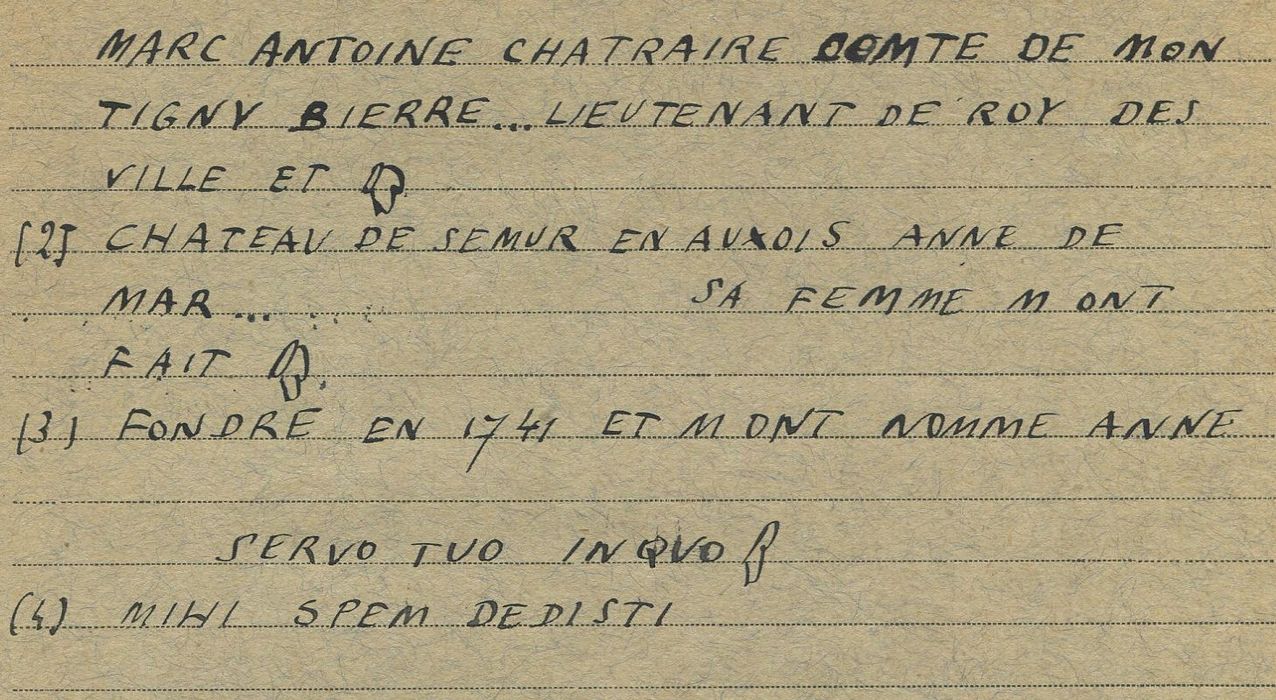 MARC ANTOINE CHATRAIRE COMTE DE MON
TIGNY BIERRE... LIEUTENANT DE ROY DES
VILLE ET
[2] CHATEAU DE SEMUR EN AUXOIS ANNE DE
MAR... SA FEMME M ONT
FAIT
(3) FONDRE EN 1741 ET M ONT NOMME ANNE
SERVO TUO IN QVO
(4) MIHI SPEM DEDISTI